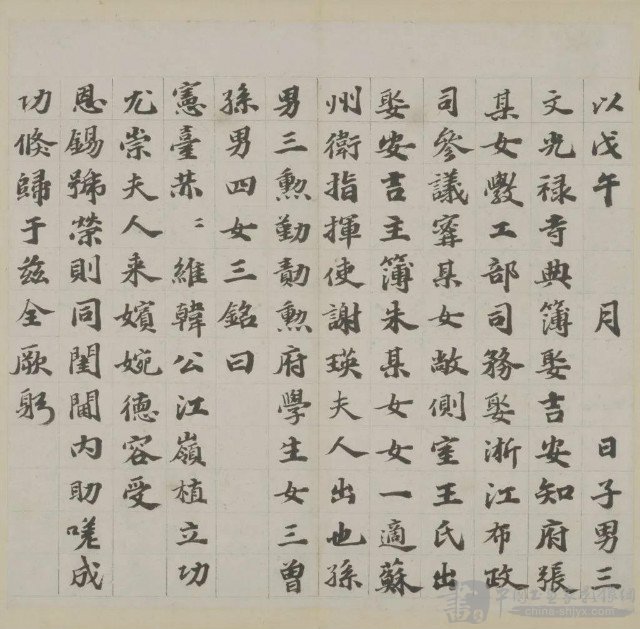 以戊午 月 日子男三
文光禄寺典簿娶吉安知府張
某女斆工部司務娶浙江布政
司參議寗某女敞側室王氏出
娶安吉主簿朱某女女一適蘇
州衛指揮使謝瑛夫人出也孫
男三勲勤勣勲府學生女三曾
孫男四女三銘曰
憲臺恭〻維韓公江嶺植立功
尤崇夫人来嬪婉德容受
恩錫號榮則同閨閫内助嗟成
功倏歸于兹全厥躬
china-shjyx.com